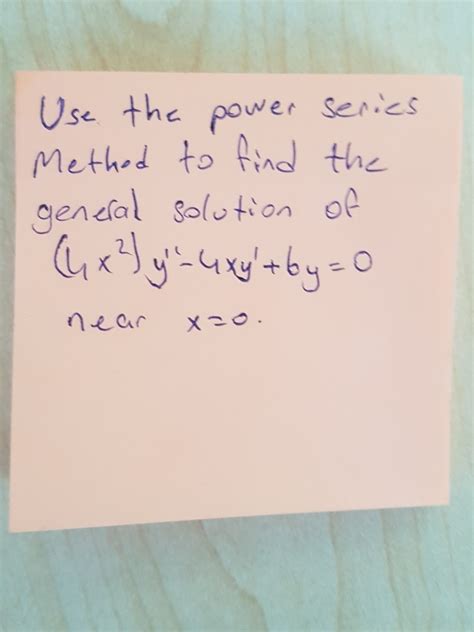 Use the power series
Method to find the
general solution of
(4x²) y'' - 4xy' + 6y = 0
near x=0.